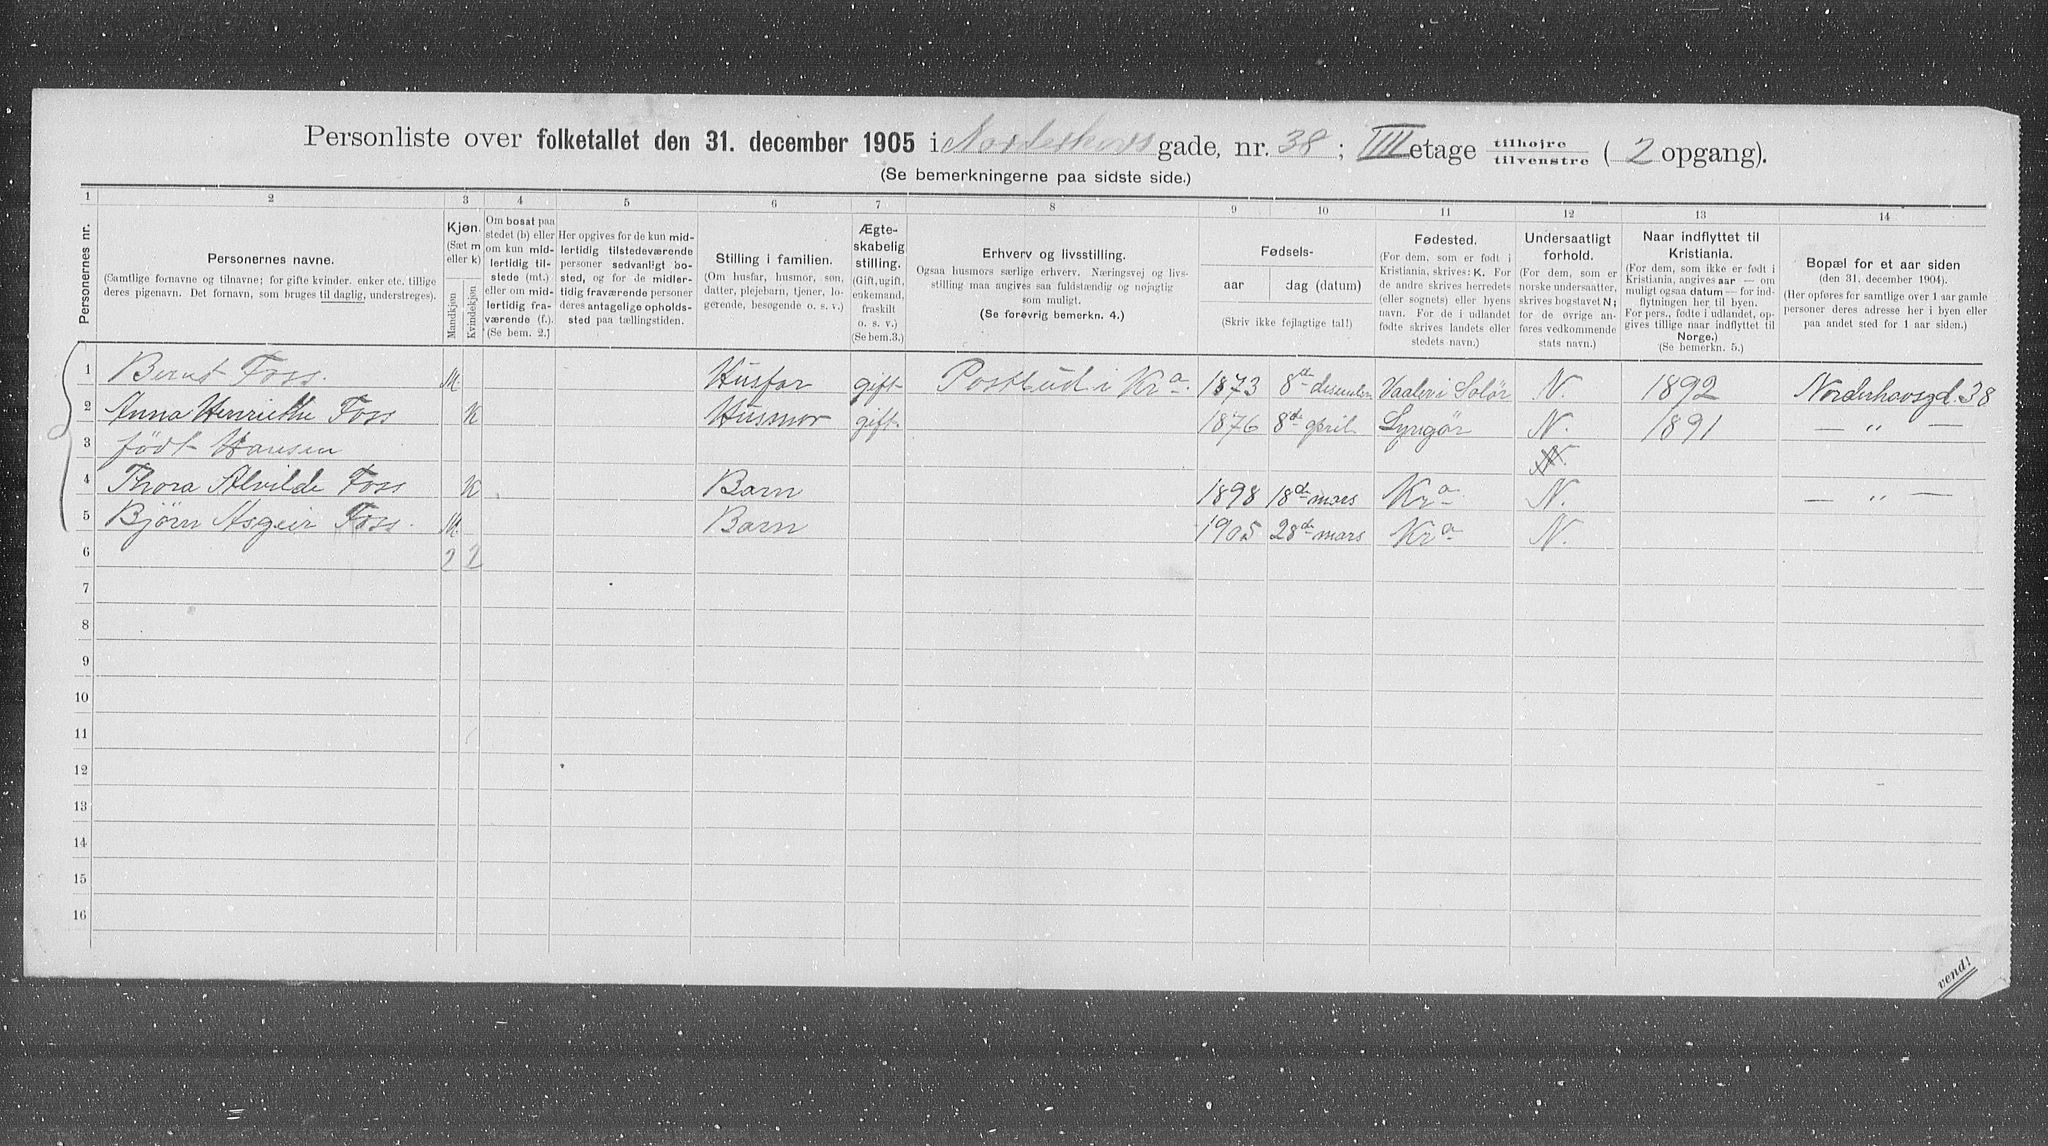 Personliste over folketallet den 31. december 1905 i Norderhovs gade, nr. 38 ; IIII etage tilhøjre / tilvenstre ( 2 opgang).
(Se bemerkningerne paa sidste side.)
1 2 3 4 5 6 7 8 9 10 11 12 13 14
Personernes nr.
Personernes navne.
(Samtlige fornavne og tilnavne; for gifte kvinder. enker etc. tillige
deres pigenavn. Det fornavn, som bruges til daglig, understreges).
Kjøn.
(Sæt m
eller k)
Mandkjøn
Kvindekjøn
Om bosat paa
stedet (b) eller
om kun mid-
lertidig til-
stede (mt.)
eller om mid-
lertidig fra-
værende (f.).
(Se bem. 2.)
Her opgives for de kun mid-
lertidig tilstedeværende
personer sedvanligt bo-
sted, og for de midler-
tidig fraværende personer
deres antagelige opholds-
sted paa tællingstiden.
Stilling i familien.
(Om husfar, husmor, søn,
datter, plejebarn, tjener, lo-
gerende, besøgende o. s. v.)
Ægte-
skabelig
stilling.
(Gift, ugift,
enkemand,
fraskilt
o. s. v.)
(Se bem.3.)
Erhverv og livsstilling.
Ogsaa husmors særlige erhverv. Næringsvej og livs-
stilling maa angives saa fuldstændig og nøjagtig
som muligt.
(Se forøvrig bemerkn. 4.)
Fødsels-
aar
dag (datum)
(Skriv ikke fejlagtige tal!)
Fødested.
(For dem, som er født i
Kristiania, skrives: K. For
de andre skrives herredets
(eller sognets) eller byens
navn. For de i udlandet
fødte skrives landets eller
stedets navn.)
Undersaatligt
forhold.
(For dem, som er
norske undersaatter,
skrives bogstavet N;
for de øvrige an-
føres vedkommende
stats navn.)
Naar indflyttet til
Kristiania.
(For dem, som ikke er født i
Kristiania, angives aar — om
muligt ogsaa datum — for ind-
flytningen her til byen.
For pers., fødte i udlandet, op-
gives tillige naar indflyttet til
Norge.)
(Se bemerkn. 5.)
Bopæl for et aar siden
(den 31. december 1904).
(Her opføres for samtlige over 1 aar gamle
personer deres adresse her i byen eller
paa andet sted for 1 aar siden.)
1 Bernt Foss. M Husfar gift Postbud i Kra. 1873 8de desember Vaaler i Solør N. 1892 Norderhovsgd. 38
2 Anna Henriette Foss K Husmor gift 1876 8de april Lyngør N. 1891 — " —
3 født Hansen N.
4 Thora Alvilde Foss K Barn 1898 18de mars Kra. N. — " —
5 Bjørn Asgeir Foss. M Barn 1905 28de mars Kra N.
6 2 2
7
8
9
10
11
12
13
14
15
16
vend!